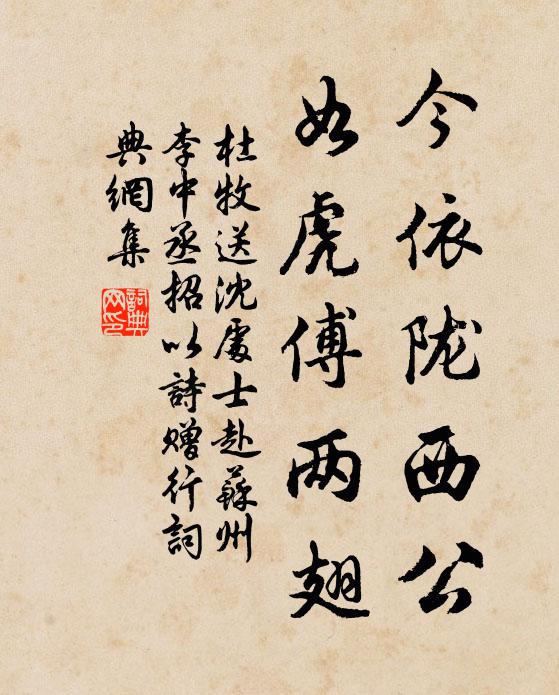 今依陇西公
如虎傅两翅
杜牧送沈處士赴蘇州
李中丞招以詩赠行詞
典網集
詞典
网印